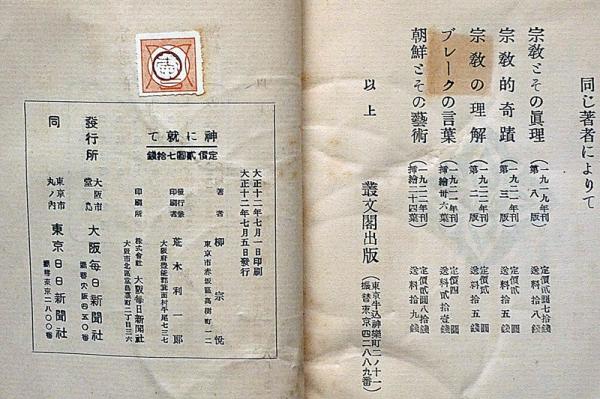 同じ著者によりて
宗教とその眞理 (一九一九年刊 第八版) 定價貳圓七拾錢 送料拾八錢
宗教的奇蹟 (一九二一年刊 第二版) 定價貳圓 送料拾五錢
宗教の理解 (一九二二年刊 第三版) 定價貳圓八拾錢 送料拾五錢
ブレークの言葉 (一九二一年刊 挿繪廿六葉) 定價四圓 送料貳拾壹錢
朝鮮とその藝術 (一九二二年刊 挿繪二十四葉) 定價貳圓八拾錢 送料拾九錢
以上
叢文閣出版 (東京牛込神樂町二ノ十一 振替東京四二八八九番)
神に就て
定價貳圓七拾錢
大正十二年七月一日印刷
大正十二年七月五日發行
著者 柳宗悅
東京市赤坂區高樹町一二
發行兼印刷者 荒木利一郎
大阪府豐能郡箕面村平尾七三七
印刷所 株式會社大阪每日新聞社
大阪市北區堂島裏町二丁目三六
發行所 大阪市堂島 大阪每日新聞社
同 東京市丸ノ內 東京日日新聞社
振替東京二八〇〇番